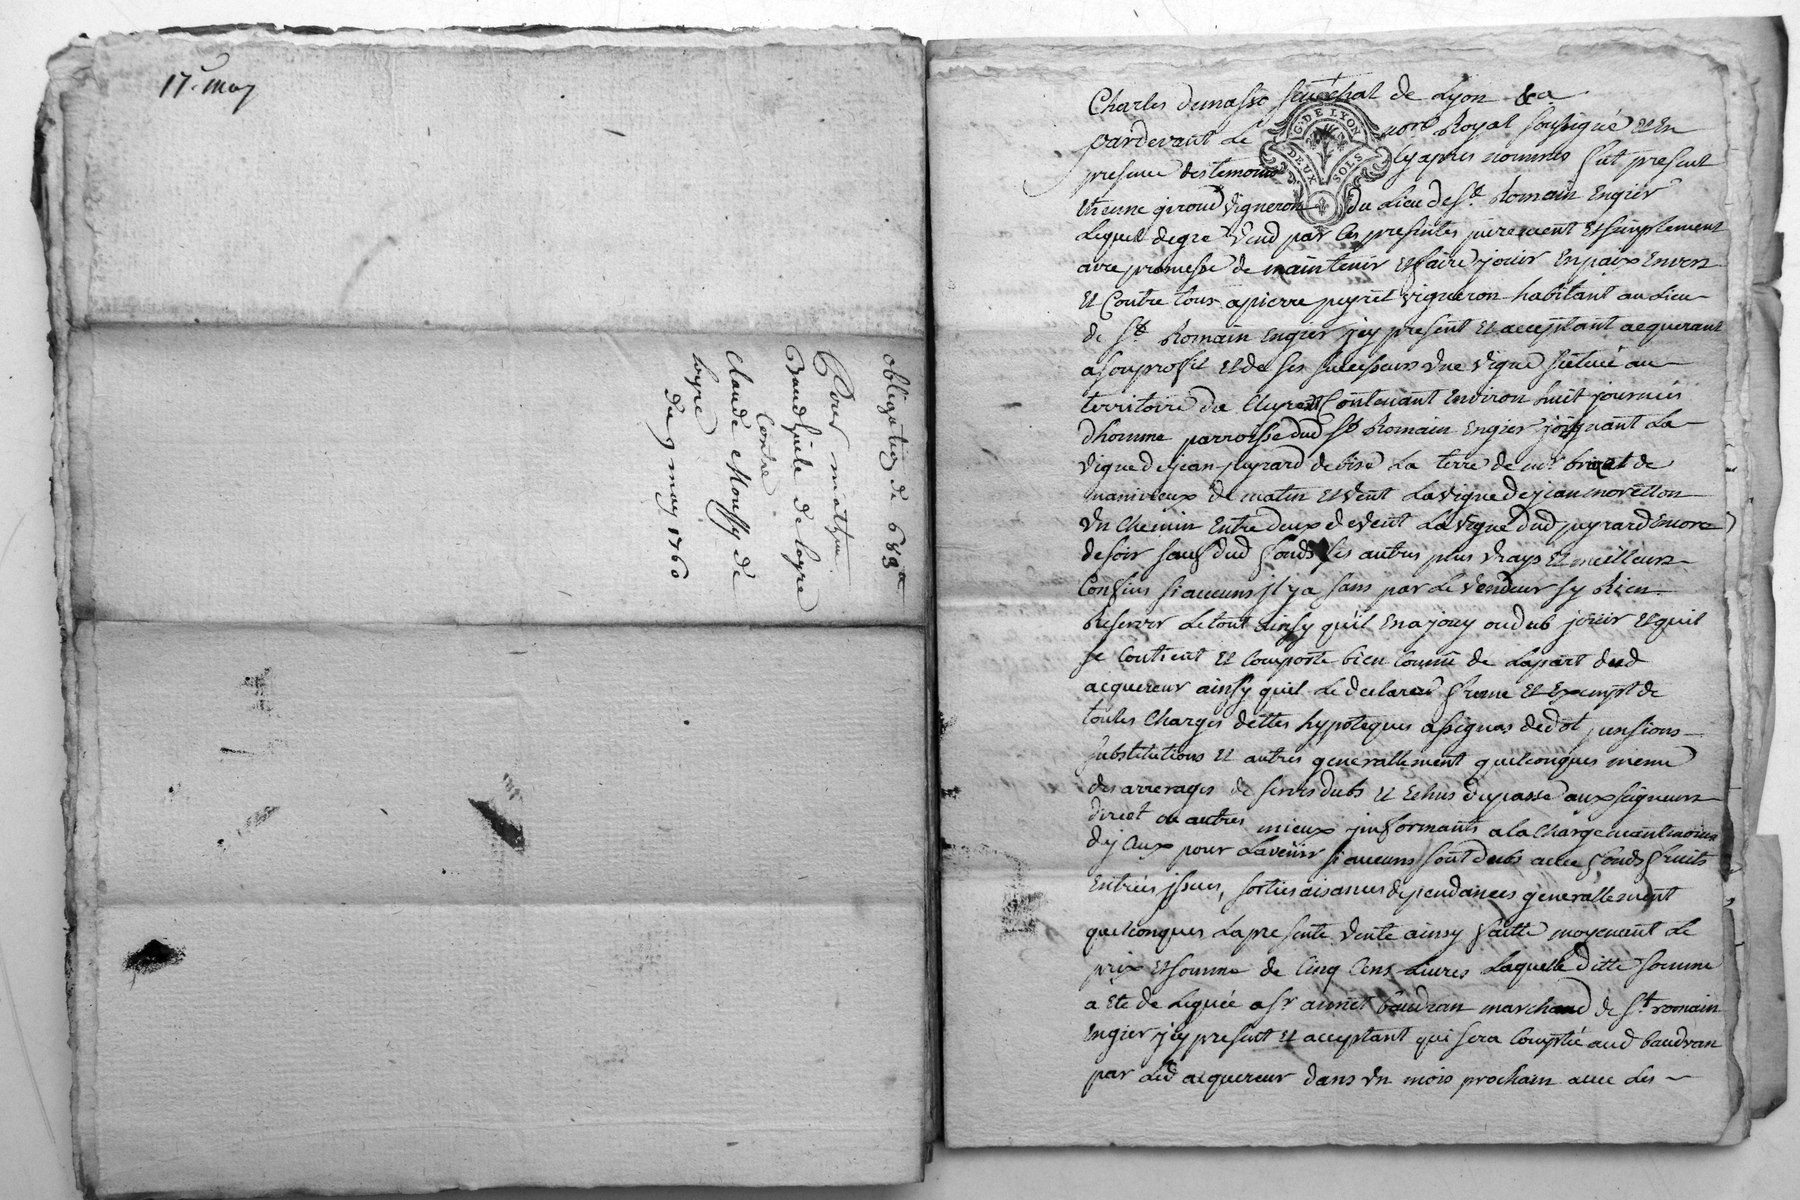 17. may
obligation de 68#
Pour mathieu
Baudhuile de loyre
Contre
Claude Mouffy de
loyre
du 9 may 1760
Charles demasso senechal de Lyon &a
G. DE LYON
DEUX SOLS
pardevant Le nore Royal soussigné et En
presence des temoins cy apres nommés fut present
Etienne giroud vigneron du Lieu de St. Romain Engier
Lequel de gré vend par Ces presentes purement Et simplement
avec promesse de maintenir et faire jouir En paix Envers
Et Contre tous a pierre peyret vigneron habitant au Lieu
de St Romain Engier icy present Et acceptant acquerant
a son profit Et de ses successeurs une vigne scituée au
territoire du Contenant Environ huit journées
d'homme parroisse dud St Romain Engier joignant La
vigne de jean peyrard de bise La terre de mr de
manivieux de matin Et vent La vigne de jean moretton
un Chemin Entre deux de vent La vigne dud peyrard Encore
de soir sauf dud fonds ses autres plus vrays Et meilleurs
Confins si aucuns il y a sans par Le vendeur sy Rien
Reserver Le tout ainsy qu'il En a jouy ou dub jouir Et quil
se Contient Et Comporte bien Connu de La part dud
acquereur ainsy quil Le declare franc Et Exempt de
toutes Charges dettes hypoteques assignas de dot pensions
substitutions Et autres generallement quelconques meme
des arrerages de servis dubs Et Echus du passé aux seigneurs
direct ou autres mieux informants a la Charge neantmoins
d'jceux pour Lavenir si aucuns sont dubs avec fonds fruits
Entrées issues, sorties aisances dependances generallement
quelconques La presente vente ainsy faitte moyenent Le
prix Et somme de Cinq Cens Livres Laquelle ditte somme
a Eté deleguée a sr annet baudran marchand de St. romain
Engier icy present Et acceptant qui sera Comptée aud baudran
par Led acquereur dans un mois prochain avec Les